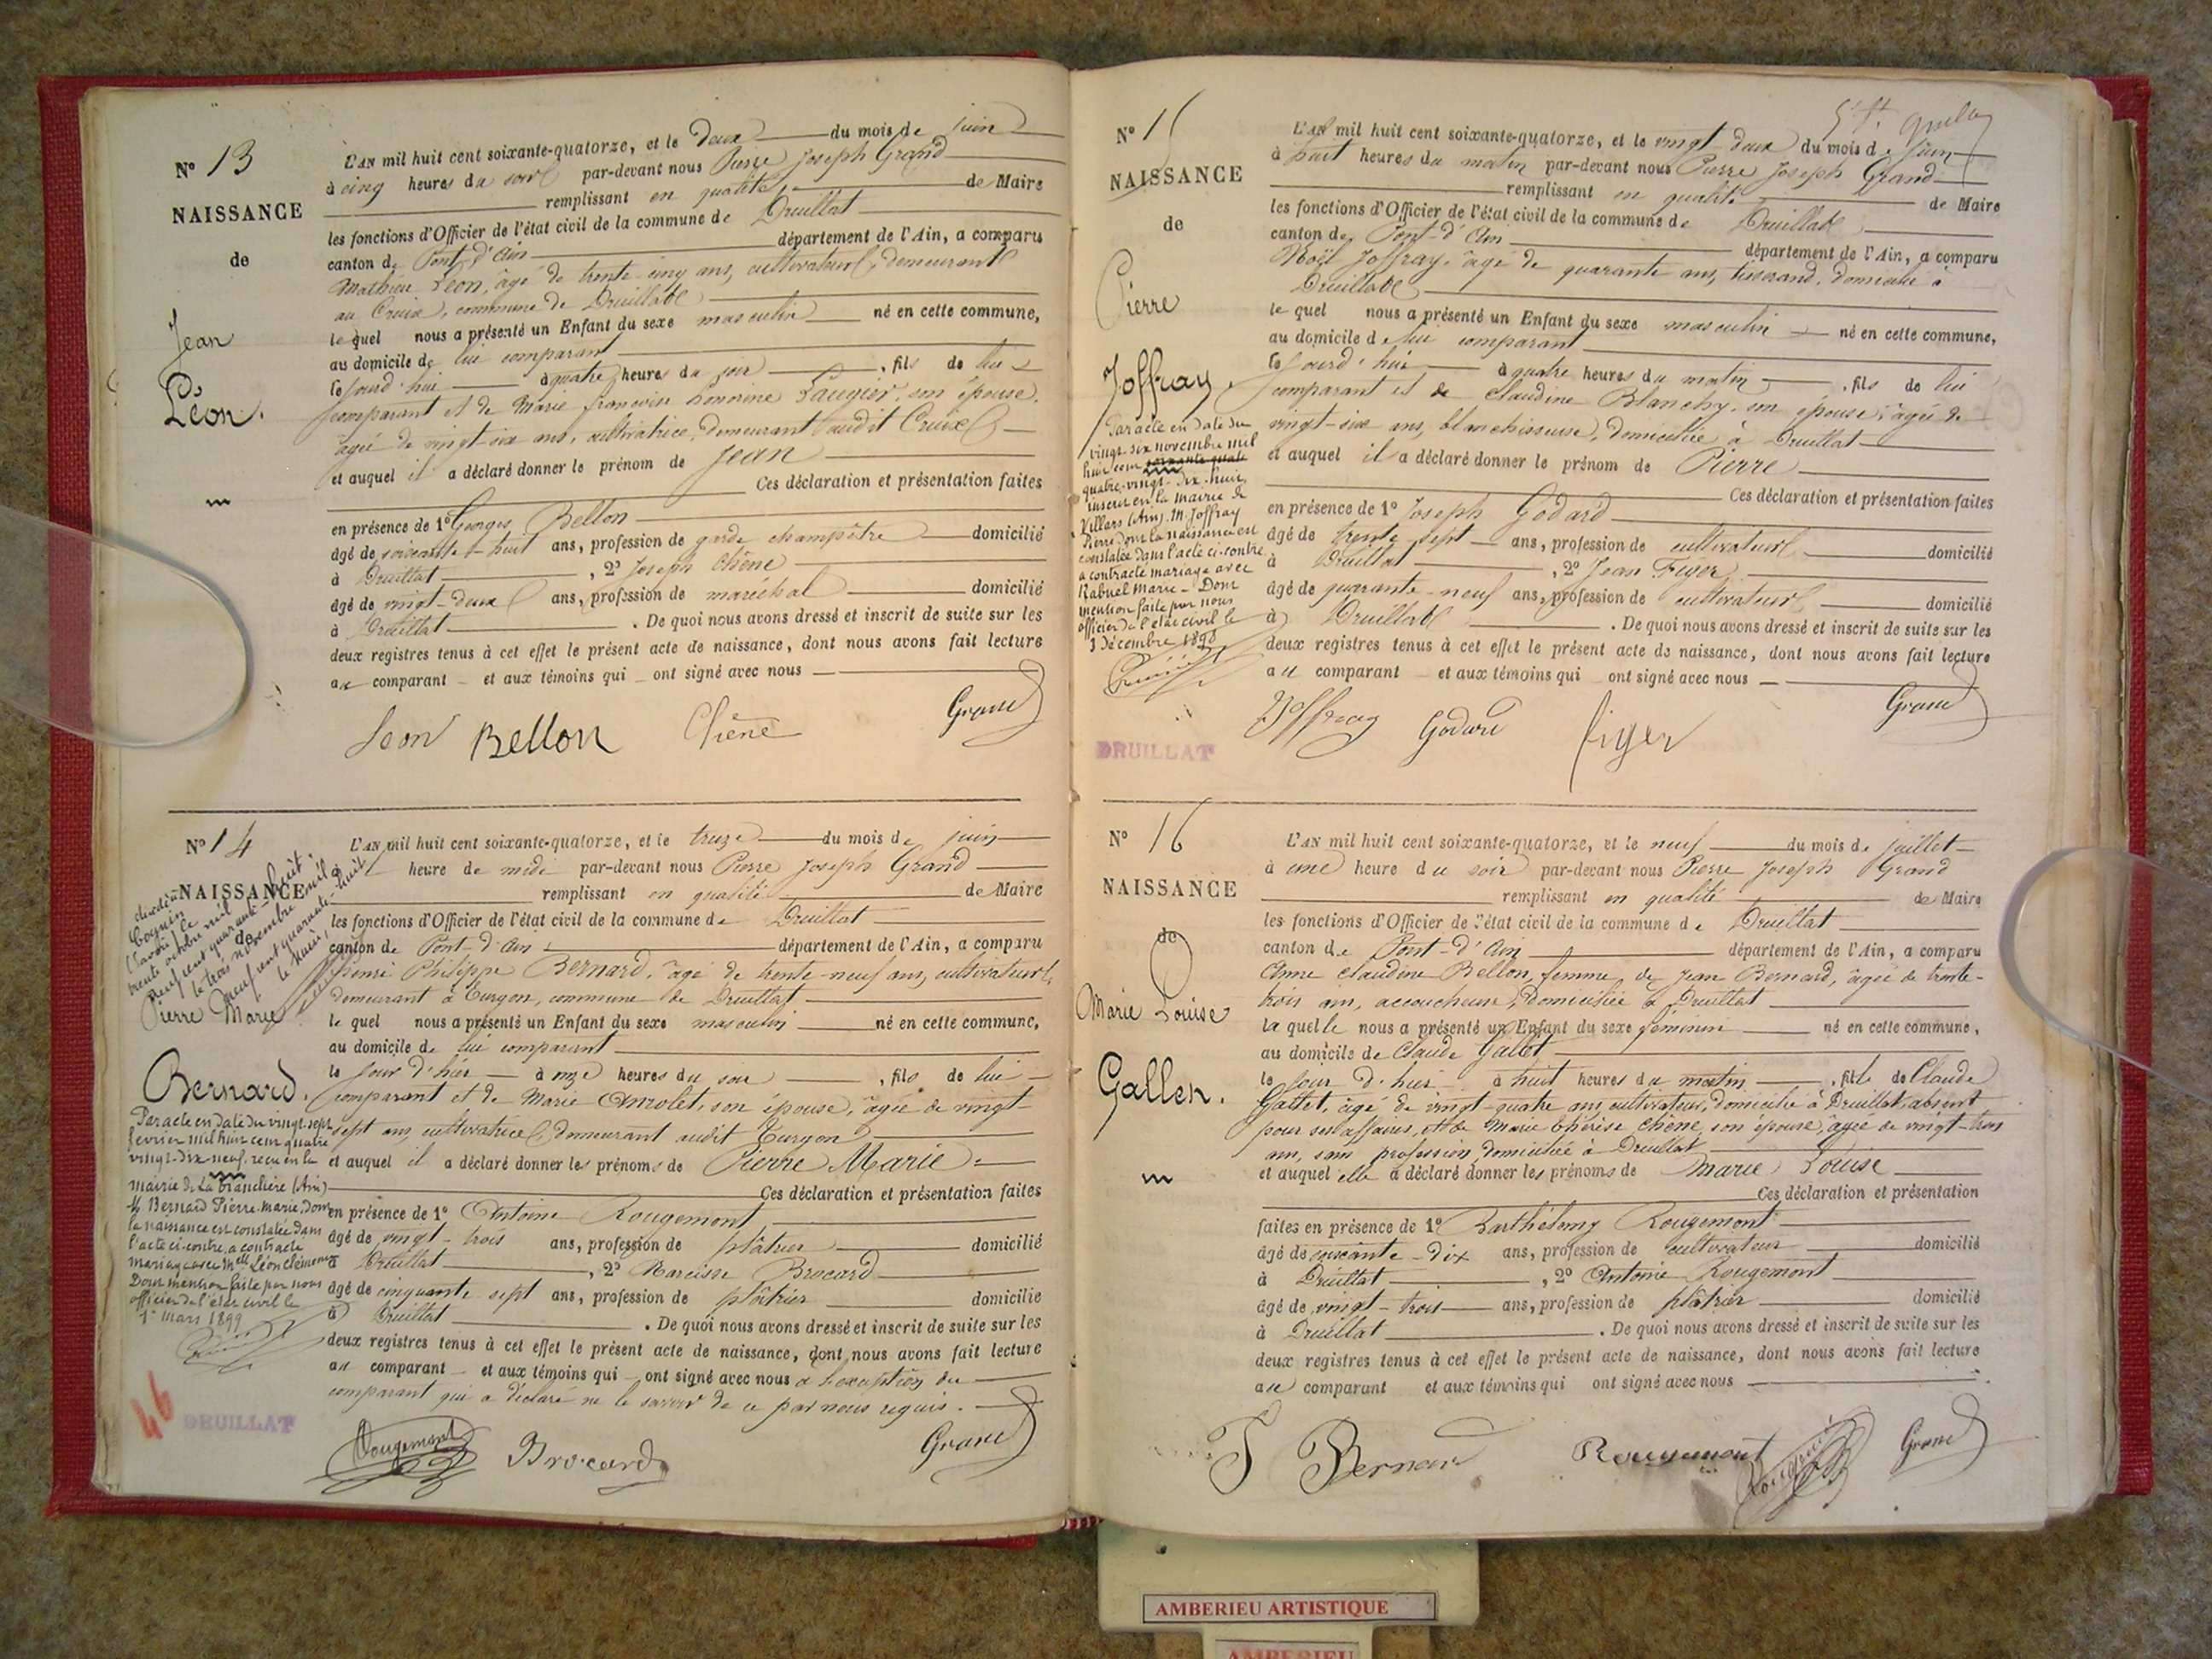 N° 13
NAISSANCE
de
Jean
Léon.
L'AN mil huit cent soixante-quatorze, et le deux du mois de juin
à cinq heures du soir par-devant nous Pierre Joseph Grand
remplissant en qualité de Maire
les fonctions d'Officier de l'état civil de la commune de Druillat
canton de Pont-d'Ain département de l'Ain, a comparu
Mathieu Léon, âgé de trente-cinq ans, cultivateur, demeurant
au Cruix, commune de Druillat
le quel nous a présenté un Enfant du sexe masculin né en cette commune,
au domicile de lui comparant
le jourd'hui à quatre heures du soir, fils de lui
comparant et de Marie françoise honorine Laugier, son épouse,
âgée de vingt-six ans, cultivatrice, demeurant audit Cruix
et auquel il a déclaré donner le prénom de Jean
Ces déclaration et présentation faites
en présence de 1° Georges Bellon
âgé de soixante-huit ans, profession de garde champêtre domicilié
à Druillat, 2° Joseph Chêne
âgé de vingt-deux ans, profession de maréchal domicilié
à Druillat. De quoi nous avons dressé et inscrit de suite sur les
deux registres tenus à cet effet le présent acte de naissance, dont nous avons fait lecture
au comparant et aux témoins qui ont signé avec nous
Leon Bellon Chêne Grand
N° 14
NAISSANCE
de
décédé à
le
trente octobre mil
neuf cent quarante-huit.
le trois novembre mil
neuf cent quarante-huit
le Maire,
Pierre Marie
Bernard.
Par acte en date du vingt-sept
février mil huit cent quatre
vingt-dix-neuf, reçu en la
mairie de La Tranclière (Ain)
M. Bernard Pierre-Marie, dont
la naissance est constatée dans
l'acte ci-contre, a contracté
mariage avec Melle Léon Clémence
Dont mention faite par nous
officier de l'état civil le
1er mars 1899
L'AN mil huit cent soixante-quatorze, et le treize du mois de juin
heure de midi par-devant nous Pierre Joseph Grand
remplissant en qualité de Maire
les fonctions d'Officier de l'état civil de la commune de Druillat
canton de Pont-d'Ain département de l'Ain, a comparu
Philippe Bernard, âgé de trente-neuf ans, cultivateur,
demeurant à Turgon, commune de Druillat
le quel nous a présenté un Enfant du sexe masculin né en cette commune,
au domicile de lui comparant
le jour d'hier à onze heures du soir, fils de lui
comparant et de Marie Anzolet, son épouse, âgée de vingt-
sept ans, cultivatrice, demeurant audit Turgon
et auquel il a déclaré donner les prénoms de Pierre Marie
Ces déclaration et présentation faites
en présence de 1° Antoine Rougemont
âgé de vingt-trois ans, profession de plâtrier domicilié
à Druillat, 2° Narcisse Brocard
âgé de cinquante sept ans, profession de plâtrier domicilié
à Druillat. De quoi nous avons dressé et inscrit de suite sur les
deux registres tenus à cet effet le présent acte de naissance, dont nous avons fait lecture
au comparant et aux témoins qui ont signé avec nous à l'exception du
comparant qui a déclaré ne le savoir de ce par nous requis.
46
DRUILLAT
Rougemont Brocard Grand
N° 15
NAISSANCE
de
Pierre
Joffray.
Par acte en date du
vingt-six novembre mil
huit cent soixante quat
quatre-vingt-dix-huit,
inscrit en la mairie de
Villars (Ain), M. Joffray
Pierre dont la naissance est
constatée dans l'acte ci-contre
a contracté mariage avec
Rabuel Marie - Dont
mention faite par nous
officier de l'état civil le
3 décembre 1898
L'AN mil huit cent soixante-quatorze, et le vingt-deux du mois de juin
à huit heures du matin par-devant nous Pierre Joseph Grand
remplissant en qualité de Maire
les fonctions d'Officier de l'état civil de la commune de Druillat
canton de Pont-d'Ain département de l'Ain, a comparu
Noël Joffray, âgé de quarante ans, tisserand, domicilié à
Druillat
le quel nous a présenté un Enfant du sexe masculin né en cette commune,
au domicile de lui comparant
le jourd'hui à quatre heures du matin, fils de lui
comparant et de Claudine Blanchy, son épouse, âgée de
vingt-six ans, blanchisseuse, domiciliée à Druillat
et auquel il a déclaré donner le prénom de Pierre
Ces déclaration et présentation faites
en présence de 1° Joseph Godard
âgé de trente-sept ans, profession de cultivateur domicilié
à Druillat, 2° Jean Figer
âgé de quarante-neuf ans, profession de cultivateur domicilié
à Druillat. De quoi nous avons dressé et inscrit de suite sur les
deux registres tenus à cet effet le présent acte de naissance, dont nous avons fait lecture
au comparant et aux témoins qui ont signé avec nous
Joffray Godard figer Grand
DRUILLAT
N° 16
NAISSANCE
de
Marie Louise
Gallet.
L'AN mil huit cent soixante-quatorze, et le neuf du mois de juillet
à une heure du soir par-devant nous Pierre Joseph Grand
remplissant en qualité de Maire
les fonctions d'Officier de l'état civil de la commune de Druillat
canton de Pont-d'Ain département de l'Ain, a comparu
Anne Claudine Bellon, femme de Jean Bernard, âgée de trente-
trois ans, accoucheuse, domiciliée à Druillat
la quelle nous a présenté un Enfant du sexe féminin né en cette commune,
au domicile de Claude Gallet
le jour d'hier à huit heures du matin, fille de Claude
Gallet, âgé de vingt-quatre ans, cultivateur, domicilié à Druillat, absent
pour ses affaires, et de Marie Thérèse Chêne, son épouse, âgée de vingt-trois
ans, sans profession, domiciliée à Druillat
et auquel elle a déclaré donner les prénoms de Marie Louise
Ces déclaration et présentation
faites en présence de 1° Barthélemy Rougemont
âgé de soixante-dix ans, profession de cultivateur domicilié
à Druillat, 2° Antoine Rougemont
âgé de vingt-trois ans, profession de plâtrier domicilié
à Druillat. De quoi nous avons dressé et inscrit de suite sur les
deux registres tenus à cet effet le présent acte de naissance, dont nous avons fait lecture
au comparant et aux témoins qui ont signé avec nous
Bernard Rougemont Rougemont Grand
AMBERIEU ARTISTIQUE
AMBERIEU